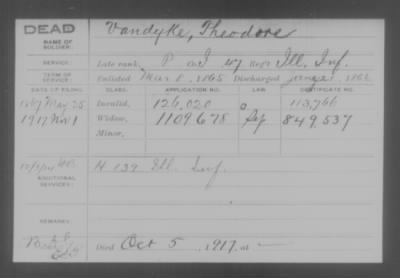 DEAD
NAME OF SOLDIER:
Vandyke, Theodore
SERVICE:
Late rank, P Ill. Inf.
TERM OF SERVICE:
Enlisted Mar 1865 Discharged
DATE OF FILING. CLASS. APPLICATION NO. LAW. CERTIFICATE NO.
May 25 Invalid, 126,020 113,766
1917 Nov 1 Widow, 1109678 Sep 849,537
Minor,
ADDITIONAL SERVICES:
H 139 Ill. Inf.
REMARKS:
Died Oct 5, 1917, at —